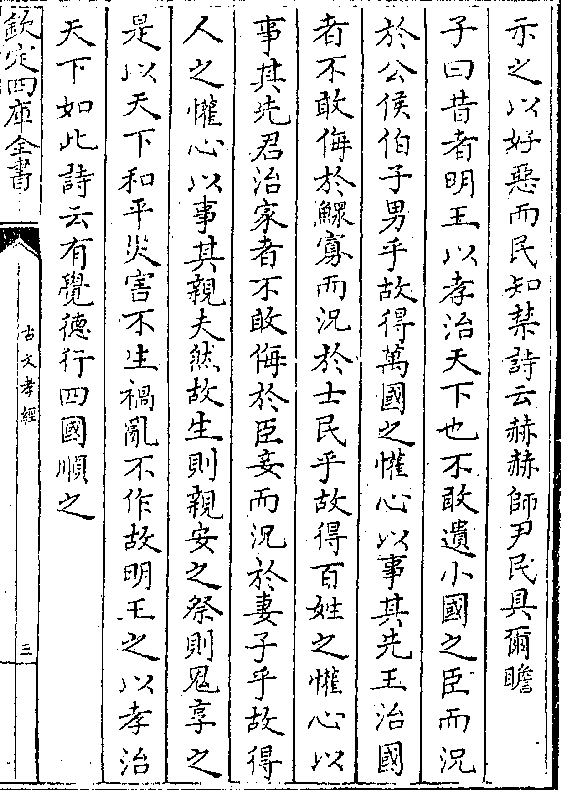 示之以好惡而民知禁詩云赫赫師尹民具爾瞻
子曰昔者明王以孝治天下也不敢遺小國之臣而況
於公侯伯子男乎故得萬國之懽心以事其先王治國
者不敢侮於鰥寡而況於士民乎故得百姓之懽心以
事其先君治家者不敢侮於臣妾而況於妻子乎故得
人之懽心以事其親夫然故生則親安之祭則鬼享之
是以天下和平災害不生禍亂不作故明王之以孝治
天下如此詩云有覺德行四國順之
欽定四庫全書
古文孝經
三